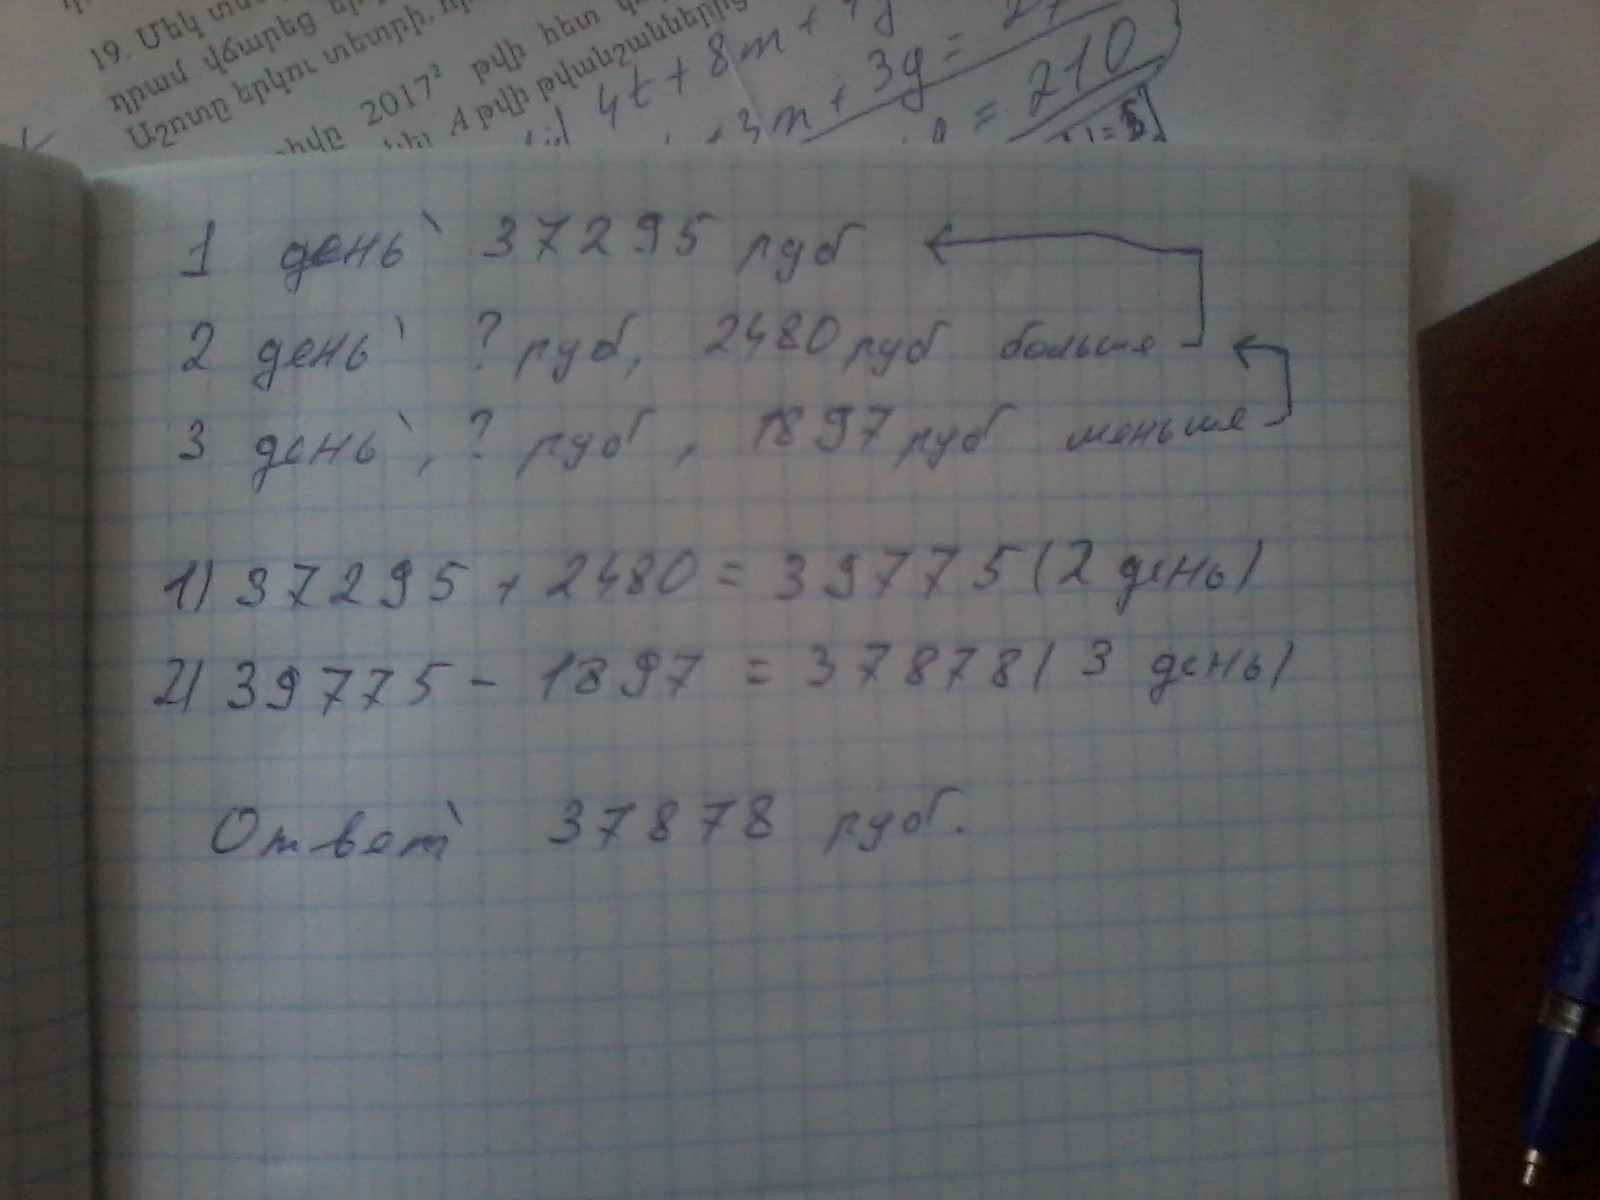 19. Մեկ
դրամ վճարեց
Աշոտը երկու տետրի,
2017² թվի հետ
A թվի թվանշաններից
4t + 8m +
3m + 3g =
= 210
1 день՝ 37295 руб
2 день՝ ? руб, 2480 руб больше
3 день՝, ? руб, 1897 руб меньше
1) 37295 + 2480 = 39775 (2 день)
2) 39775 - 1897 = 37878 (3 день)
Ответ՝ 37878 руб.